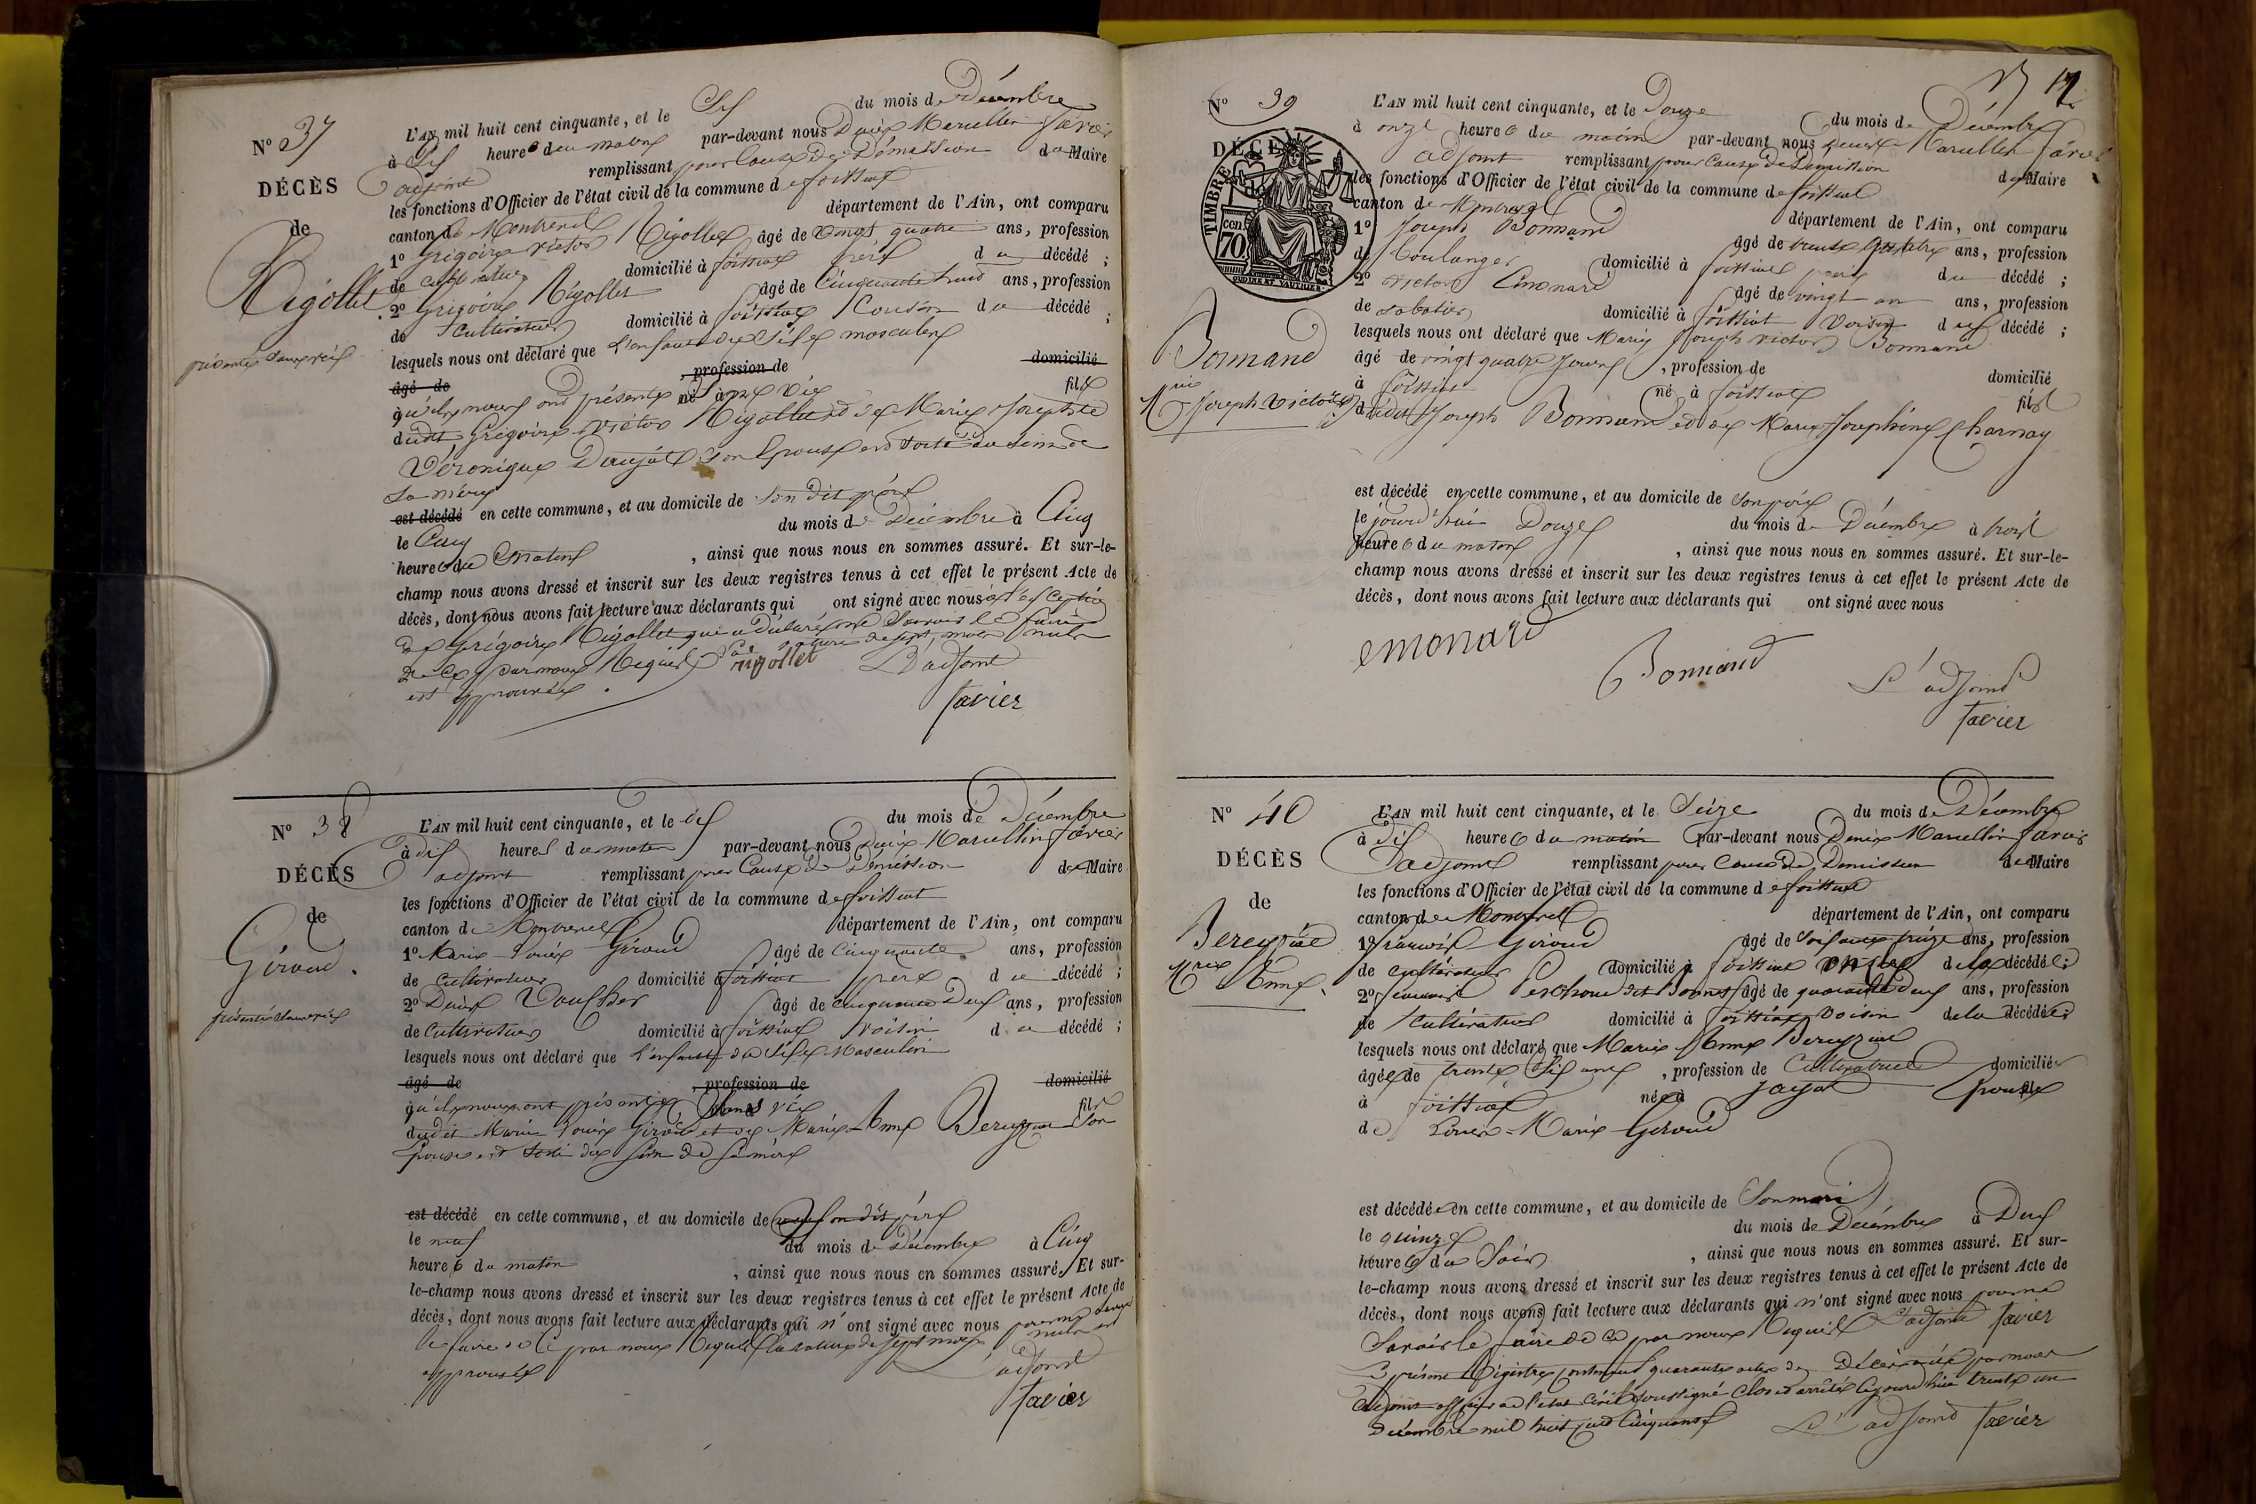 N° 37
DÉCÈS
de
Rigollet
présenté sans vie
L'AN mil huit cent cinquante, et le Six du mois de Décembre
à Six heures du matin par-devant nous Denis Marcellin Favier
adjoint remplissant pour Cause de Démission du Maire
les fonctions d'Officier de l'état civil de la commune de foissiat
canton de Montrevel département de l'Ain, ont comparu
1° Grégoire victor Rigollet âgé de vingt quatre ans, profession
de cultivateur domicilié à foissiat père du décédé ;
2° Grégoire Rigollet âgé de Cinquante huit ans, profession
de Cultivateur domicilié à foissiat Cousin du décédé ;
lesquels nous ont déclaré que l'enfant du Sexe masculin
âgé de , profession de domicilié
qu'ils nous ont présenté Sans vie fils
dudit Grégoire victor Rigollet et de Marie Josephte
Veronique Daujat son Epouse est sorti du sein de
sa mère
est décédé en cette commune, et au domicile de son dit père
le Cinq du mois de Décembre à Cinq
heures du matin , ainsi que nous nous en sommes assuré. Et sur-le-
champ nous avons dressé et inscrit sur les deux registres tenus à cet effet le présent Acte de
décès, dont nous avons fait lecture aux déclarants qui ont signé avec nous à l'exception
de Grégoire Rigollet qui a déclaré ne Savoir le faire
de ce par nous Requis la rature de sept mots nuls
est approuvée rigollet L'adjoint
Favier
N° 38
DÉCÈS
de
Giroud
présenté sans vie
L'AN mil huit cent cinquante, et le dix du mois de Décembre
à dix heures du matin par-devant nous Denis Marcellin Favier
adjoint remplissant pour Cause de Démission du Maire
les fonctions d'Officier de l'état civil de la commune de foissiat
canton de Montrevel département de l'Ain, ont comparu
1° Marie Louis Giroud âgé de Cinquante ans, profession
de Cultivateur domicilié à foissiat père du décédé ;
2° Denis âgé de cinquante Deux ans, profession
de Cultivateur domicilié à foissiat voisin du décédé ;
lesquels nous ont déclaré que l'enfant du Sexe Masculin
âgé de , profession de domicilié
qu'ils nous ont présenté Sans vie fils
dudit Marie Louis Giroud et de Marie Anne Bereyziat son
Epouse est Sorti du Sein de sa mère
est décédé en cette commune, et au domicile de son dit père
le neuf du mois de Décembre à Cinq
heures du matin , ainsi que nous nous en sommes assuré. Et sur-
le-champ nous avons dressé et inscrit sur les deux registres tenus à cet effet le présent Acte de
décès, dont nous avons fait lecture aux déclarants qui n'ont signé avec nous pour ne savoir
le faire de Ce par nous Requis la rature de sept mots nuls est
approuvée L'adjoint
Favier
N° 39
DÉCÈS
TIMBRE
70
Bonnand
Marie Joseph Victor
L'AN mil huit cent cinquante, et le Douze du mois de Décembre
à onze heures du matin par-devant nous Denis Marcellin Favier
adjoint remplissant pour Cause de Démission du Maire
les fonctions d'Officier de l'état civil de la commune de foissiat
canton de Montrevel département de l'Ain, ont comparu
1° Joseph Bonnand âgé de trente quatre ans, profession
de boulanger domicilié à foissiat père du décédé ;
2° victor Emonard âgé de vingt un ans, profession
de sabotier domicilié à foissiat voisin du décédé ;
lesquels nous ont déclaré que Marie Joseph victor Bonnand
âgé de vingt quatre jours , profession de domicilié
à foissiat né à foissiat fils
dudit Joseph Bonnand et de Marie Josephine Charnay
est décédé en cette commune, et au domicile de son père
le jourd'hui Douze du mois de Décembre à trois
heures du matin , ainsi que nous nous en sommes assuré. Et sur-le-
champ nous avons dressé et inscrit sur les deux registres tenus à cet effet le présent Acte de
décès, dont nous avons fait lecture aux déclarants qui ont signé avec nous
emonard
Bonnand
L'adjoint
Favier
N° 40
DÉCÈS
de
Bereyziat
Marie Anne
L'AN mil huit cent cinquante, et le Seize du mois de Décembre
à dix heures du matin par-devant nous Denis Marcellin Favier
adjoint remplissant pour Cause de Démission du Maire
les fonctions d'Officier de l'état civil de la commune de foissiat
canton de Montrevel département de l'Ain, ont comparu
1° françois Giroud âgé de Soixante seize ans, profession
de cultivateur domicilié à foissiat de la décédée ;
2° âgé de quarante deux ans, profession
de Cultivateur domicilié à foissiat voisin de la décédée
lesquels nous ont déclaré que Marie Anne Bereyziat
âgée de trente Six ans , profession de Cultivatrice domiciliée
à foissiat née à jayat Epouse
de Louis-Marie Giroud
est décédée en cette commune, et au domicile de Son mari
le quinze du mois de Décembre à Deux
heures du Soir , ainsi que nous nous en sommes assuré. Et sur-
le-champ nous avons dressé et inscrit sur les deux registres tenus à cet effet le présent Acte de
décès, dont nous avons fait lecture aux déclarants qui n'ont signé avec nous pour ne
Savoir le faire de ce par nous Requis L'adjoint Favier
présent Régistre contenant quarante actes de Décès par nous
adjoint officier de l'état Civil Soussigné Clos et arrêté ce jourd'hui trente un
Décembre mil huit cent Cinquante L'adjoint Favier